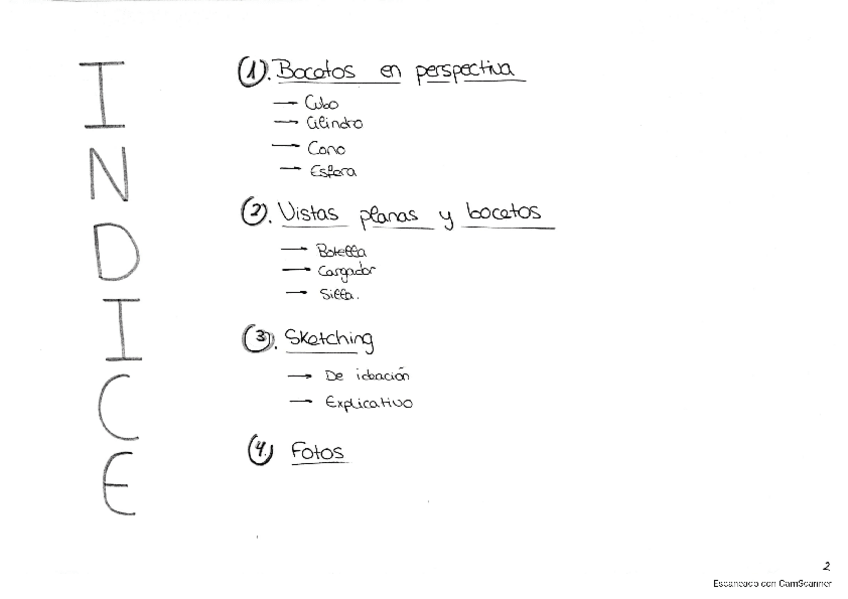 INDICE
1. Bocetos en perspectiva
→ Cubo
→ Cilindro
→ Cono
→ Esfera
2. Vistas planas y bocetos
→ Botella
→ Cargador
→ Silla.
3. Sketching
→ De ideación
→ Explicativo
4. Fotos
2
Escaneado con CamScanner